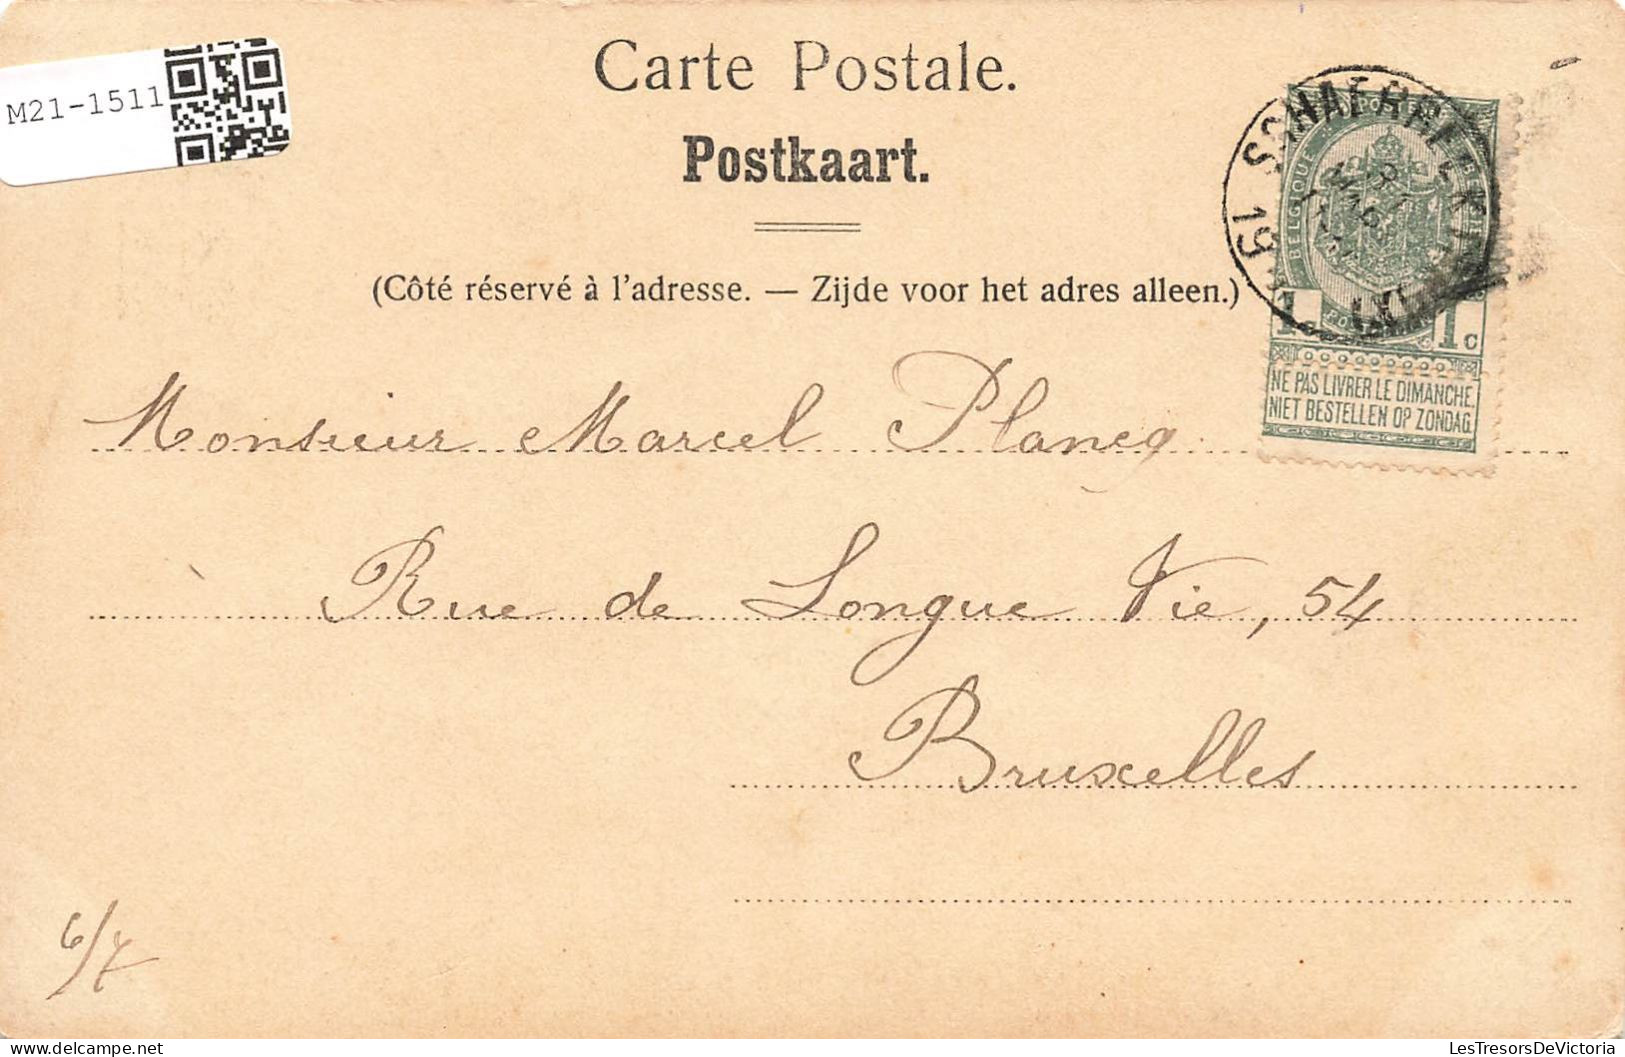 M21-1511
Carte Postale.
Postkaart.
(Côté réservé à l'adresse. — Zijde voor het adres alleen.)
BELGIQUE
1c 1c
NE PAS LIVRER LE DIMANCHE.
NIET BESTELLEN OP ZONDAG.
Monsieur Marcel Plancq
Rue de Longue Vie, 54
Bruxelles
6/7
LesTresorsDeVictoria